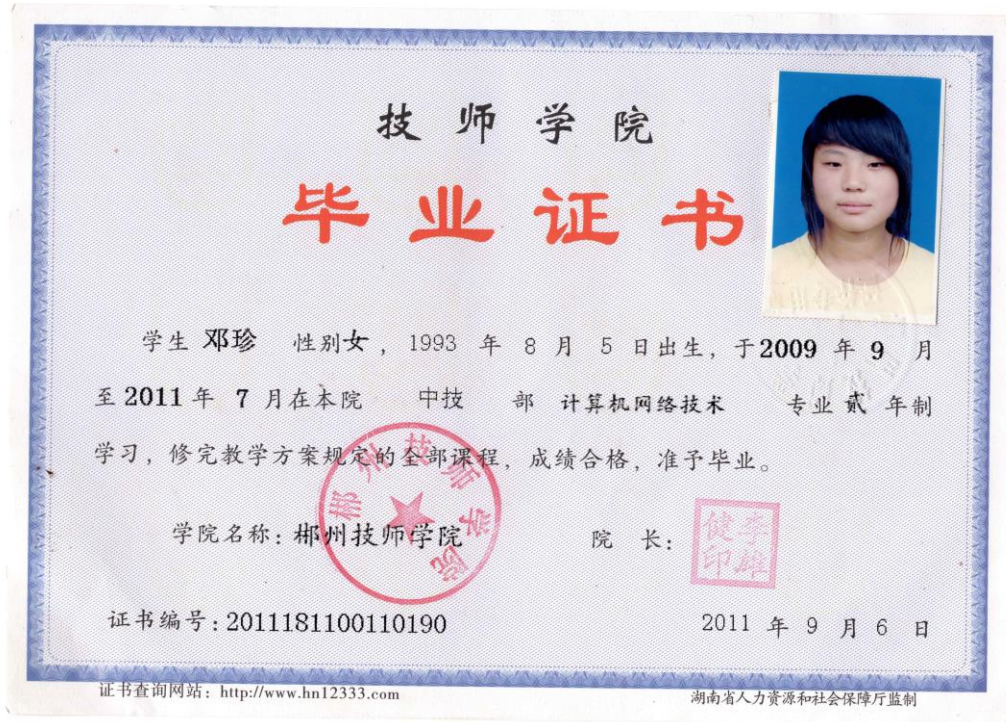 技师学院
毕业证书
学生 邓珍 性别女，1993 年 8 月 5 日出生，于2009 年 9 月
至2011年 7 月在本院 中技 部 计算机网络技术 专业 贰 年制
学习，修完教学方案规定的全部课程，成绩合格，准予毕业。
郴州技师学院
学院名称：郴州技师学院
院 长：
李雄健印
证书编号：2011181100110190
2011 年 9 月 6 日
证书查询网站：http://www.hn12333.com
湖南省人力资源和社会保障厅监制